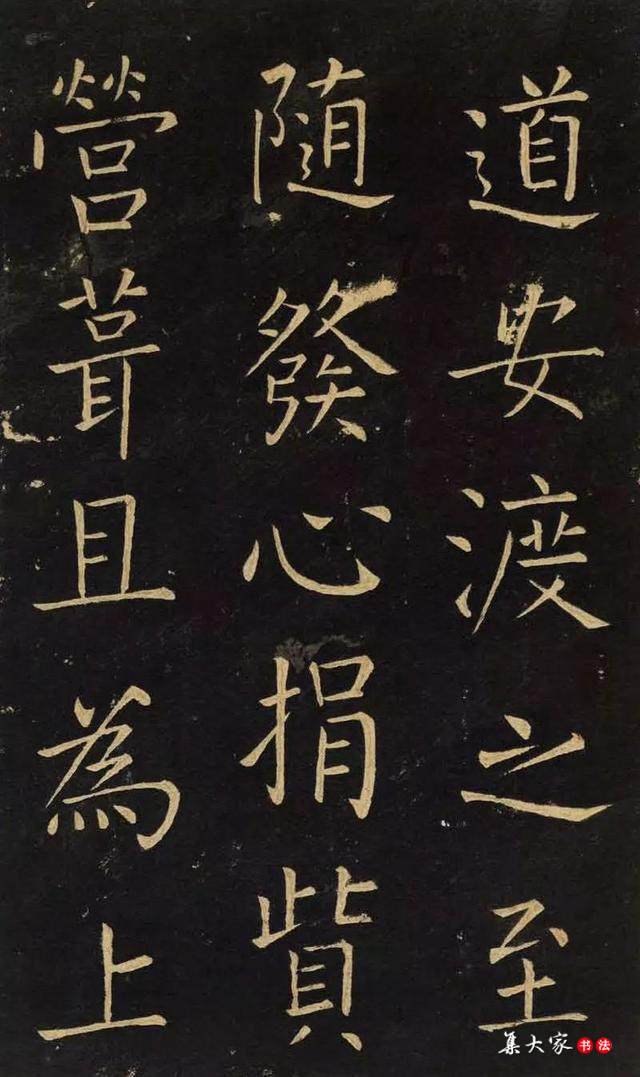 道安渡之至
随發心捐貲
營葺且為上
集大家书法